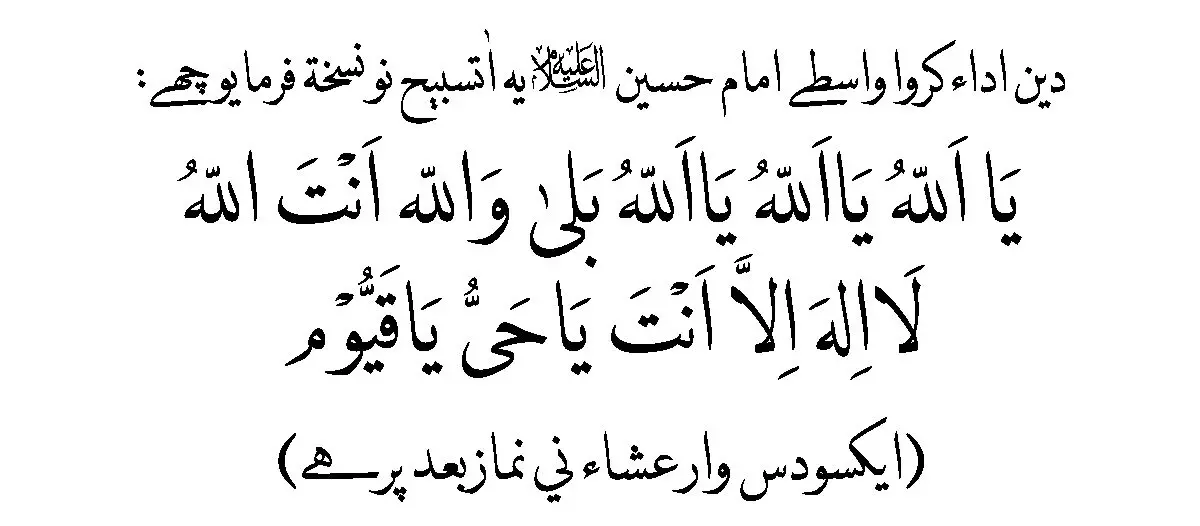 دين اداء كروا واسطے امام حسين عليه السلام يه اٰ تسبيح نو نسخة فرمايو چهے :
يَا اَللّٰهُ يَااَللّٰهُ يَااَللّٰهُ بَلىٰ وَاللّٰه اَنْتَ اللّٰهُ
لَااِلهَ اِلاَّ اَنْتَ يَاحَىُّ يَاقَيُّوْم
(ايكسودس وار عشاء ني نماز بعد پرهے)